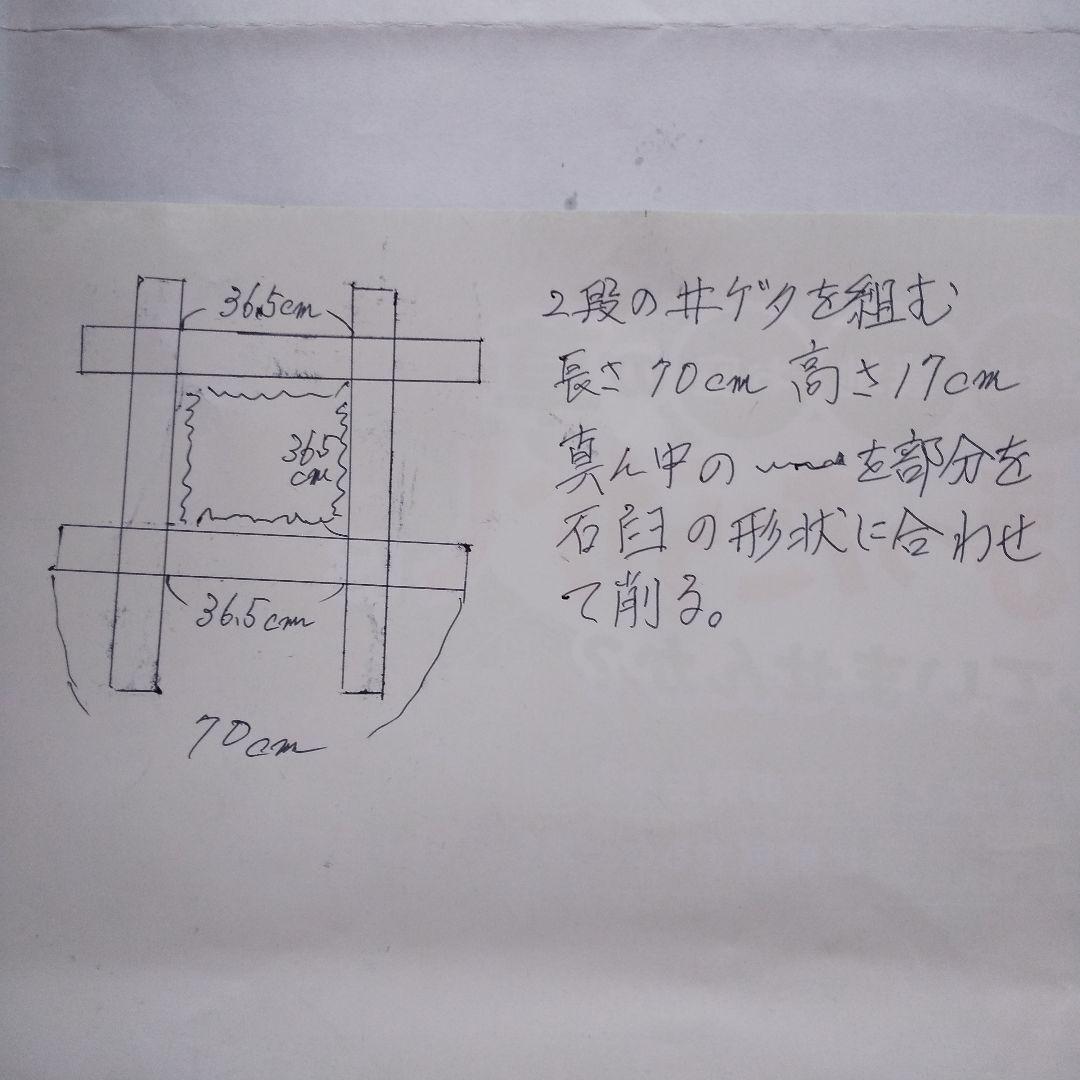 36.5cm
36.5
cm
36.5cm
70cm
2段の井ゲタを組む
長さ70cm 高さ17cm
真ん中の を部分を
石臼の形状に合わせ
て削る。